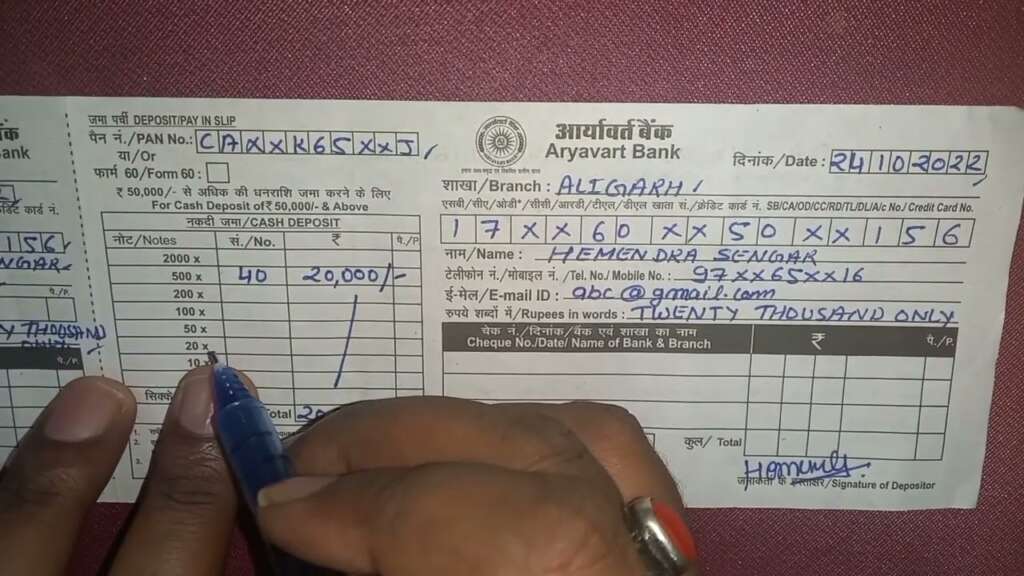 ंक
ank
डिट कार्ड नं.
156
NGAR
पै./P.
TY THOUSAND
जमा पर्ची DEPOSIT/PAY IN SLIP
पैन नं./PAN No.: CAXXK65XXJ
या/Or
फार्म 60/Form 60 :
₹ 50,000/- से अधिक की धनराशि जमा करने के लिए
For Cash Deposit of ₹ 50,000/- & Above
नकदी जमा/CASH DEPOSIT
नोट/Notes सं./No. ₹ पै./P
2000 x
500 x 40 20,000/-
200 x
100 x
50 x
20 x
10
Total 20
आर्यावर्त बैंक
Aryavart Bank
दिनांक/Date : 24102022
शाखा/Branch : ALIGARH
एसबी/सीए/ओडी*/सीसी/आरडी/टीएल/डीएल खाता सं./क्रेडिट कार्ड नं. SB/CA/OD/CC/RD/TL/DL/A/c No./ Credit Card No.
17XX60XX50XX156
नाम/Name : HEMENDRA SENGAR
टेलीफोन नं./मोबाइल नं. /Tel. No./ Mobile No. : 97XX65XX16
ई-मेल/E-mail ID : abc@gmail.com
रुपये शब्दों में/Rupees in words : TWENTY THOUSAND ONLY
चेक नं./दिनांक/बैंक एवं शाखा का नाम ₹ पै./P.
Cheque No./Date/ Name of Bank & Branch
कुल/ Total
जमाकर्ता के हस्ताक्षर/Signature of Depositor